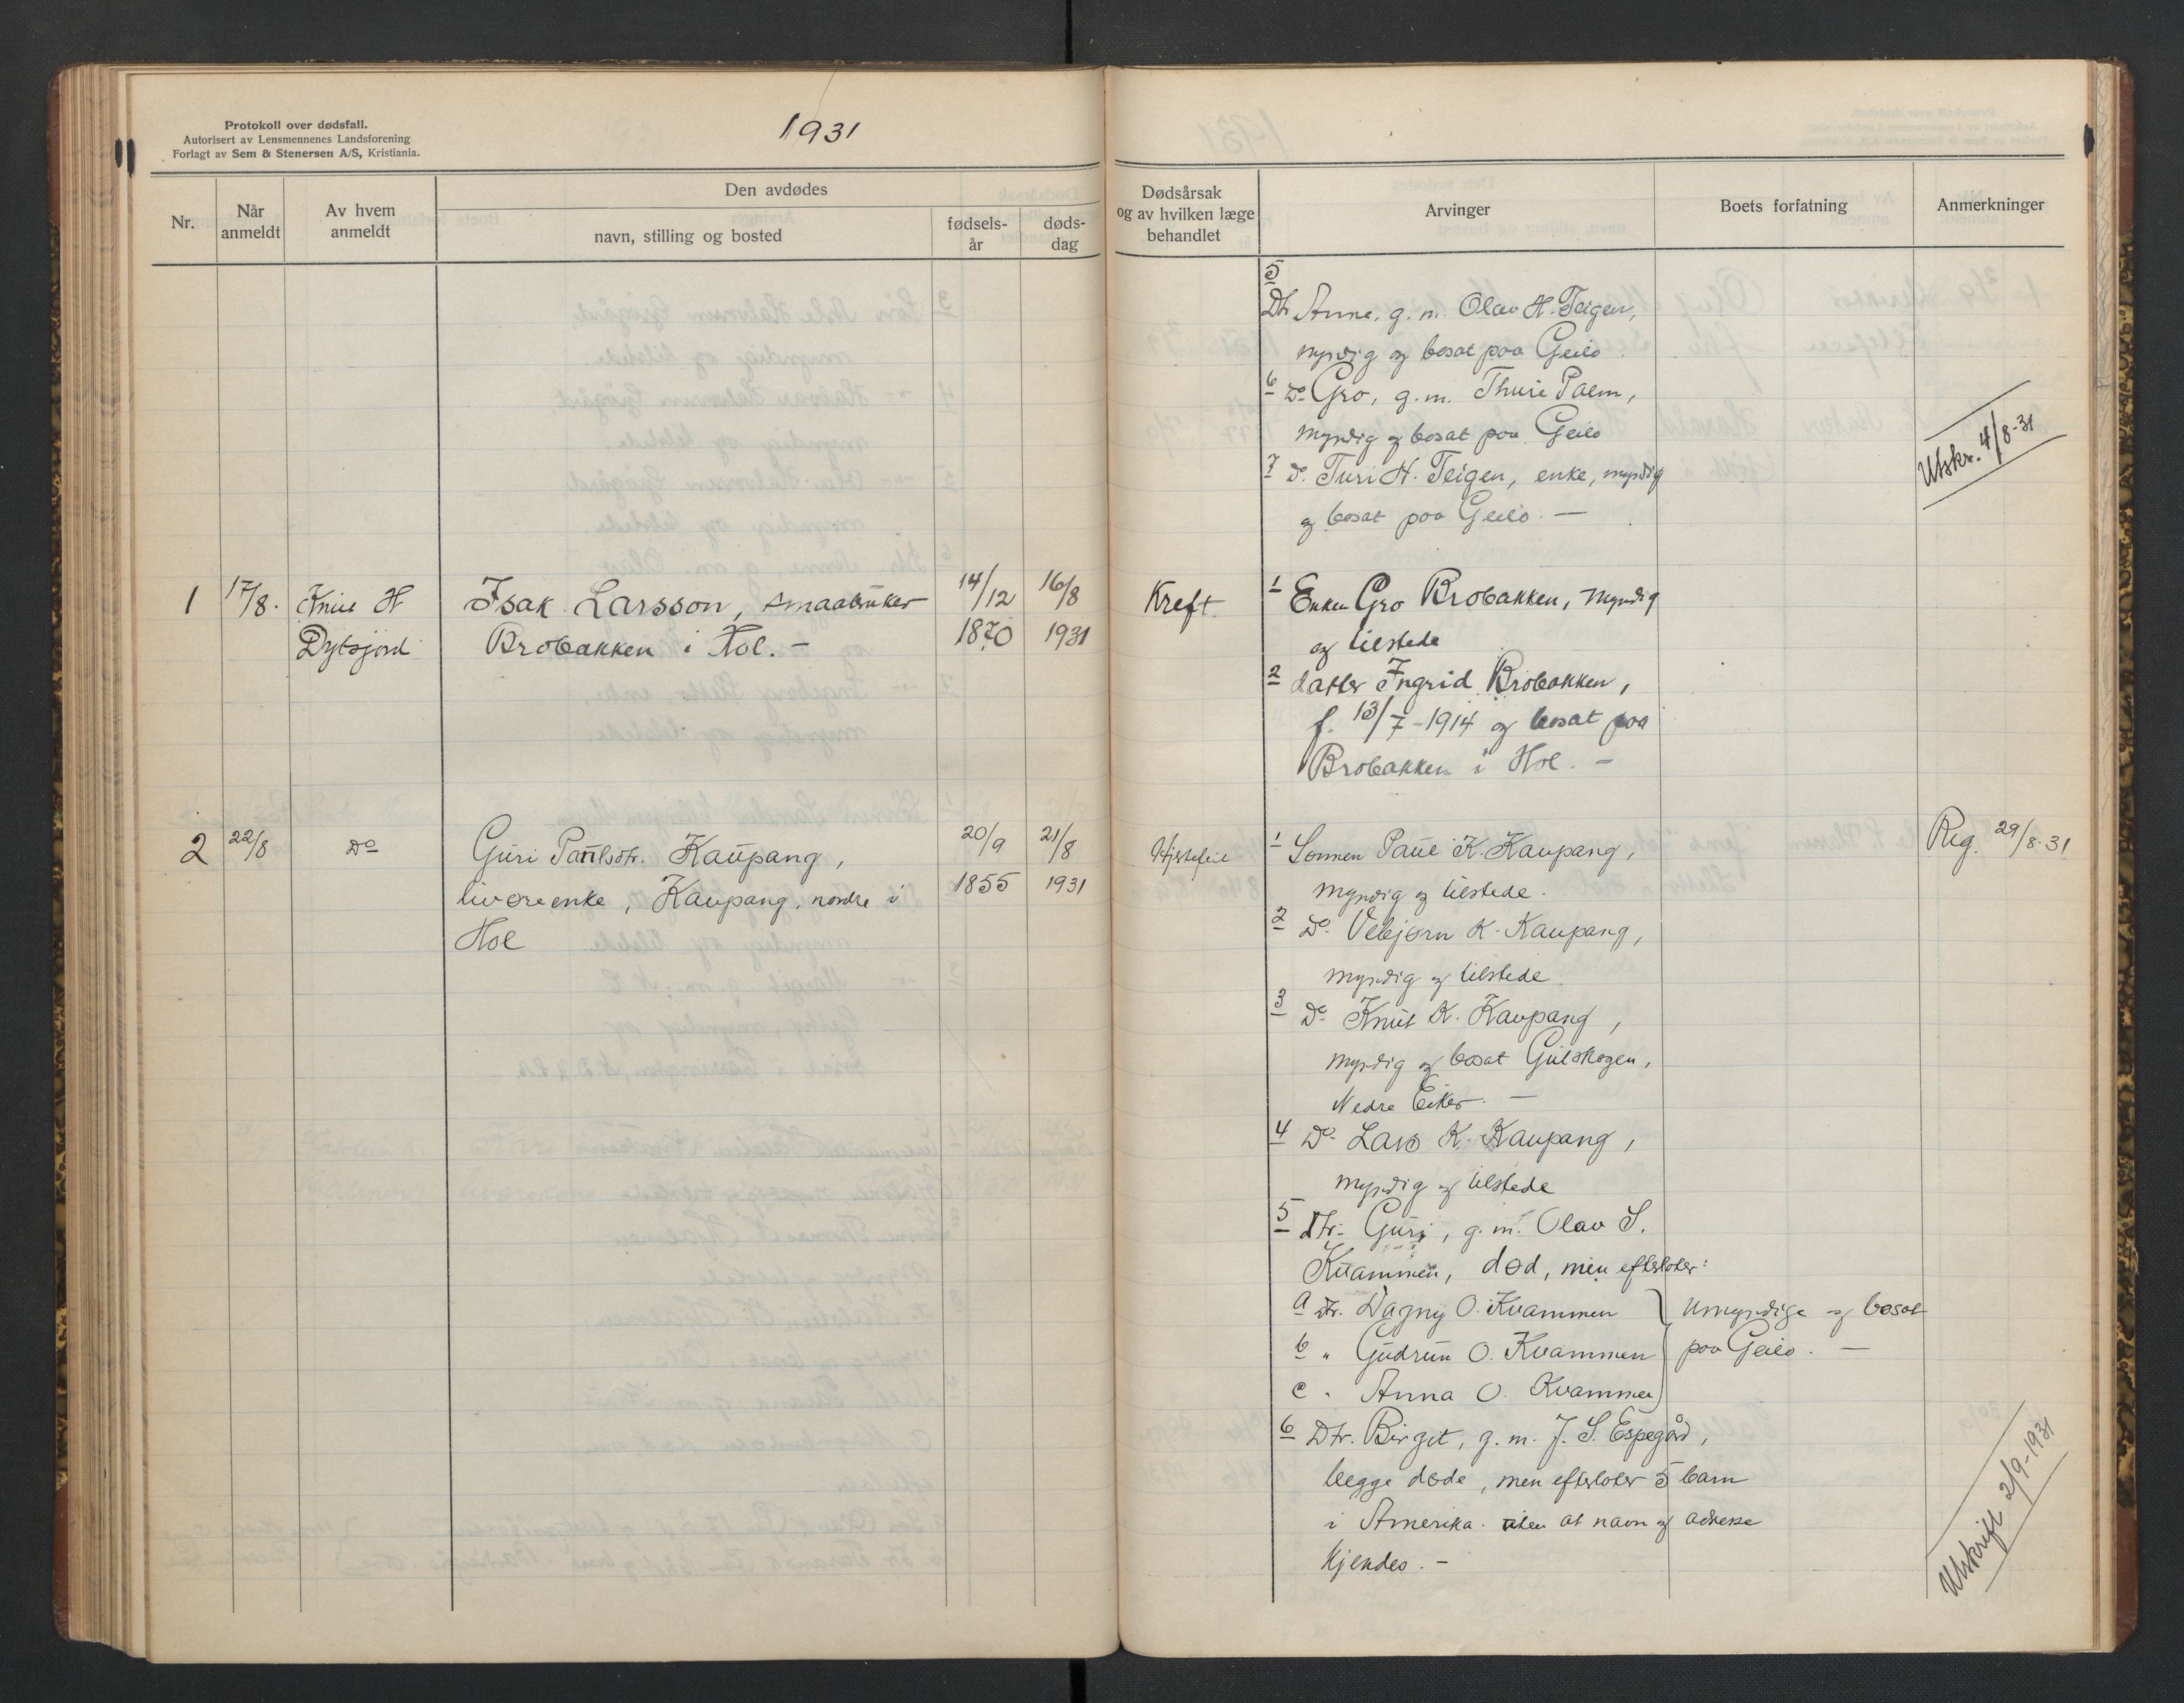 Protokoll over dødsfall.
Autorisert av Lensmennenes Landsforening
Forlagt av Sem & Stenersen A/S, Kristiania.
1931
Nr.
Når anmeldt
Av hvem anmeldt
Den avdødes
navn, stilling og bosted
fødsels-
år
døds-
dag
Dødsårsak
og av hvilken læge
behandlet
Arvinger
Boets forfatning
Anmerkninger
5
Dtr Anne, g. m. Olav H. Teigen,
myndig og bosat paa Geilo.
6 Do Gro, g. m. Thure Palm,
myndig og bosat paa Geilo
7 Do. Turi H. Teigen, enke, myndig
og bosat paa Geilo. —
Utskr. 4/8-31
1
17/8.
Knut H
Isak Larsson, smaabruker
Brobakken i Hol. -
14/12
1870
16/8
1931
Kreft
1 Enken Gro Brobakken, myndig
og tilstede
2 datter Ingrid Brobakken,
f. 13/7-1914 og bosat paa
Brobakken i Hol. -
2
22/8
Do
Guri Paulsdtr. Kaupang,
livøreenke, Kaupang, nordre i
Hol
20/9
1855
21/8
1931
Hjertefeil
1 Sønnen Paul K. Kaupang,
myndig og tilstede.
2 Do. Vebjørn K. Kaupang,
myndig og tilstede.
3 Do Knut K. Kaupang,
myndig og bosat Gulskogen,
Nedre Eiker. —
4 Do Lars K. Kaupang,
myndig og tilstede
5 Dtr. Guri, g. m. Olav S.
Kvammen, død, men efterlater:
a Dtr. Dagny O. Kvammen
b " Gudrun O. Kvammen
c " Anna O. Kvammen
umyndige og bosat
paa Geilo. —
6 Dtr. Birgit, g. m. J. S. Espegård,
begge døde, men efterlater 5 barn
i Amerika. uten at navn og adresse
kjendes. -
Reg. 29/8-31
Utskrift 2/9-1931